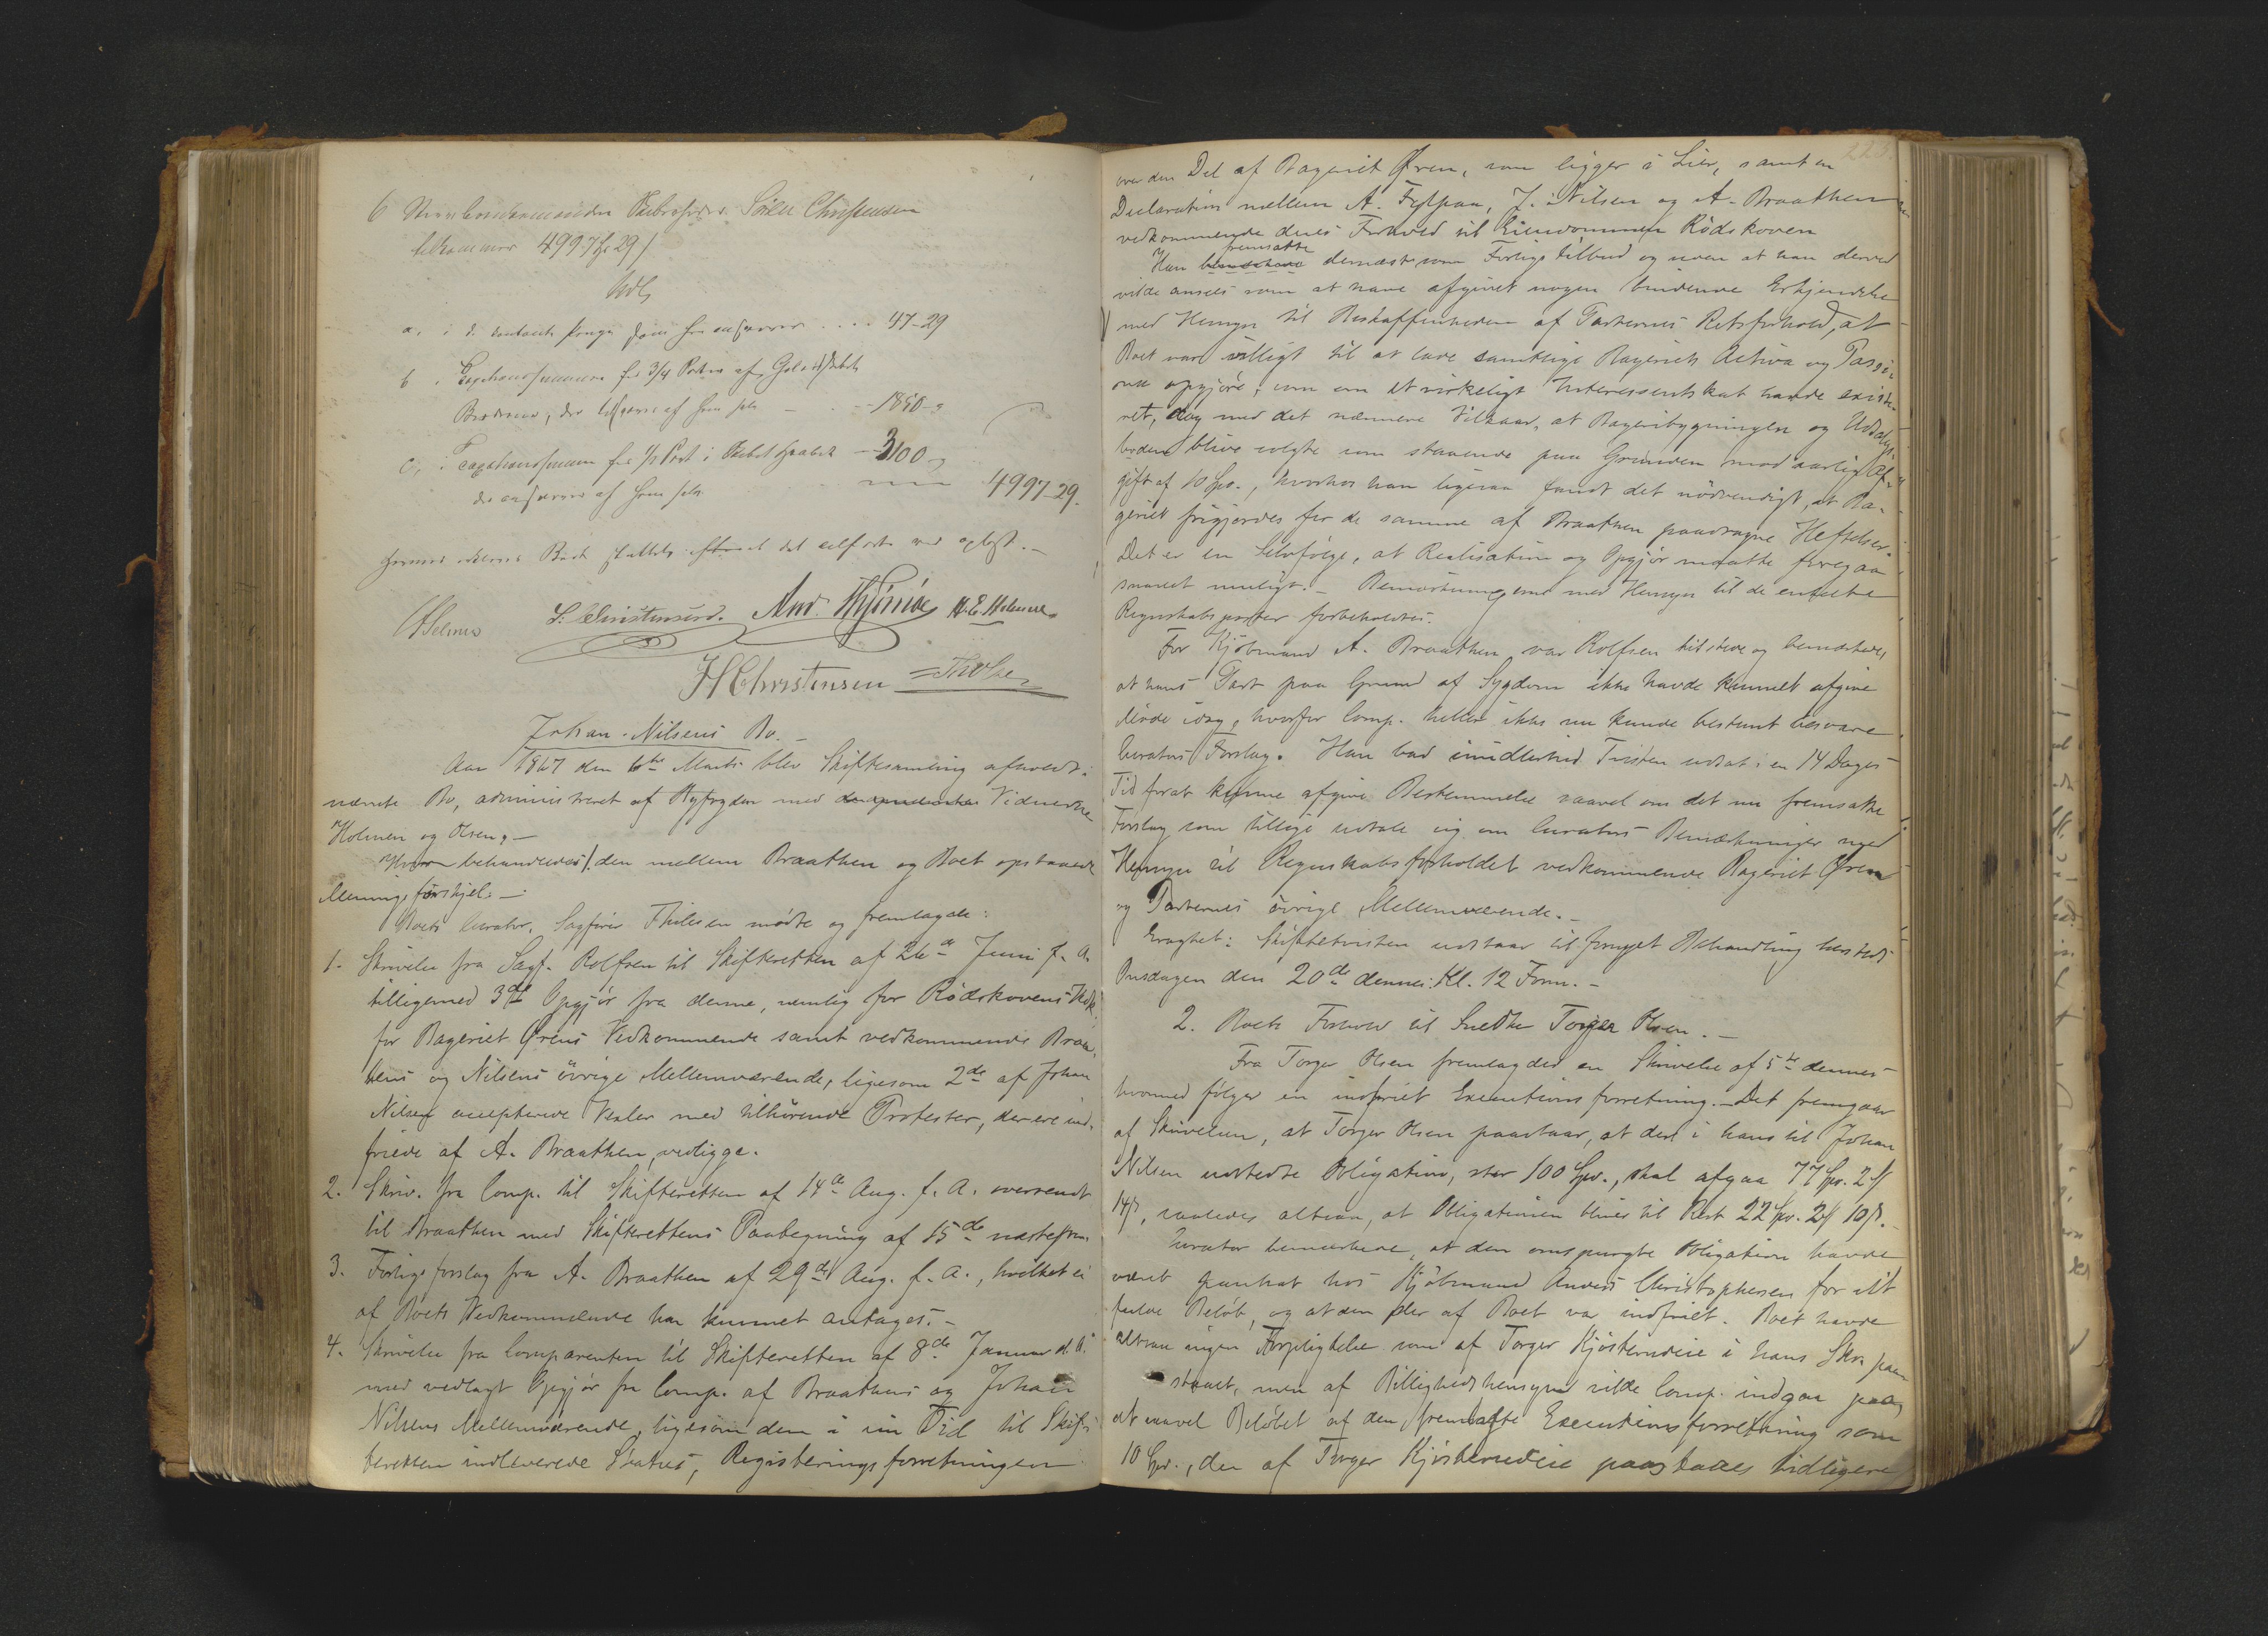 6 Skibsreder Søren Christensen
bekommer 4997 29
Udl
a, i contante Penge som han ansvarer .... 47-29
b, Taxationssummen for 3/4 Parten af
1850-"
c, i Taxationssummen for Part i Haabet 3100-"
af ham selv 4997-29.
Bo sluttet
Selmer S. Christensen. And. H. E. Holmen
J H Christensen Th Olsen
Johan Nilsens Bo.
Aar 1867 den 6te Marts blev Skiftesamling afholdt i
nævnte Bo, administreret af Byfogden med Vidnerne
Holmen og Olsen,
Hvor behandledes 1. den mellem Braathen og Boet opstaaede
Meningsforskjel. -
Boets Curator, Sagfører Thulesen mødte og fremlagde:
1. Skrivelse fra Sagf. Rolfsen til Skifteretten af 26de Juni f. A.
tilligemed 3de Opgjör fra denne, nemlig for Rødskovens Vedk.
for Bageriet Ørens Vedkommende samt vedkommende Braa-
thens og Nilsens övrige Mellemværende, ligesom 2de af Johan
Nilsen accepterede Vexler med tilhörende Protester, der ere ind-
friede af A. Braathen, vedligge.
2. Skriv. fra Comp. til Skifteretten af 14de Aug. f. A. oversendt
til Braathen med Skifterettens Paategning af 15de næstefter.
3. Forligsforslag fra A. Braathen af 29de Aug. f. A., hvilket ei
af Boets Vedkommende har kunnet antages. -
4. Skrivelse fra Comparenten til Skifteretten af 8de Januar d. A.
med vedlagt Opgjör fra Comp. af Braathens og Johan
Nilsens Mellemværende, ligesom den i sin Tid til Skif-
teretten indleverede Status, Registreringsforretningen
223.
over den Del af Bageriet Øren, som ligger i Lier, samt en
Declaration mellem A. J. Nilsen og A. Braathen
vedkommende deres Forhold til Eiendommen Rödskoven
fremsatte
Han bemærkede dernæst som Forligstilbud og uden at han derved
vilde ansees som at have afgivet nogen bindende Erkjendelse
med Hensyn til Beskaffenheden af Parternes Retsforhold, at
Boet var villigt til at lade samtlige Bageriets Activa og Passi-
va opgjöre, som om et virkeligt Interessentskab havde existe-
ret, dog med det nærmere Vilkaar, at Bageribygningen og Udsalgs-
boden blive solgte som staaende paa Grunden mod aarlig Af-
gift af 10 Spd., hvorhos han ligesaa fandt det nödvendigt, at Ba-
geriet frigjordes for de samme af Braathen paadragne Heftelser.
Det er en Selvfölge, at Realisation og Opgjör maatte foregaa
snarest muligt. - Bemærkningerne med Hensyn til de enkelte
Regnskabsposter forbeholdtes.
For Kjöbmand A. Braathen var Rolfsen tilstede og bemærkede
at hans Part paa Grund af Sygdom ikke havde kunnet afgive
Möde idag, hvorfor Comp. heller ikke nu kunde bestemt besvare
Curators Forslag. Han bad imidlertid Tvisten udsat i en 14 Dages
Tid forat kunne afgive Bestemmelse saavel om det nu fremsatte
Forslag som tillige udtale sig om Curators Bemærkninger med
Hensyn til Regnskabsforholdet vedkommende Bageriet Øren
og Parternes övrige Mellemværende. -
Eragtet: Skiftetvisten udstaar til fornyet Behandling hersteds
Onsdagen den 20de dennes Kl. 12 Form. -
2. Boets Forhold til Snedker Torger Olsen. -
Fra Torger Olsen fremlagdes en Skrivelse af 5te dennes
hvormed fölger en indfriet Executionsforretning. - Det fremgaar
af Skrivelsen, at Torger Olsen paastaar, at der i hans til Johan
Nilsen udstedte Obligation, stor 100 Spd., skal afgaa 77 Spd. 2
14, saaledes altsaa, at Obligationen bliver til Rest 22 Spd. 2 10. -
Curator bemærkede, at den omspurgte Obligation havde
været pantsat hos Kjöbmand Anders Christophersen for sit
fulde Belöb, og at den der af Boet var indfriet. Boet havde
altsaa ingen Forpligtelse som af Torger Kjösterudeie i hans Skr. paa-
staaet, men af Billighedshensyn vilde Comp. indgaa paa,
at saavel Belöbet af den fremlagte Executionsforretning som
10 Spd., der af Torger Kjösterudeie paastaaes tidligere